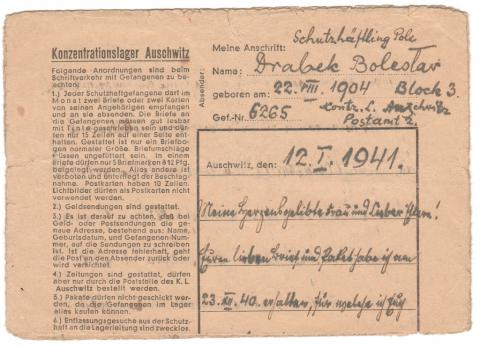 Konzentrationslager Auschwitz
Folgende Anordnungen sind beim
Schriftverkehr mit Gefangenen zu be-
achten:
1.) Jeder Schutzhaftgefangene darf im
Monat zwei Briefe oder zwei Karten
von seinen Angehörigen empfangen
und an sie absenden. Die Briefe an
die Gefangenen müssen gut lesbar
mit Tinte geschrieben sein und dürfen
nur 15 Zeilen auf einer Seite ent-
halten. Gestattet ist nur ein Briefbo-
gen normaler Größe. Briefumschläge
müssen ungefüttert sein. In einem
Briefe dürfen nur 5 Briefmarken à 12 Pfg.
beigelegt werden. Alles andere ist
verboten und unterliegt der Beschlag-
nahme. Postkarten haben 10 Zeilen.
Lichtbilder dürfen als Postkarten nicht
verwendet werden.
2.) Geldsendungen sind gestattet.
3.) Es ist darauf zu achten, daß bei
Geld- oder Postsendungen die ge-
naue Adresse, bestehend aus: Name,
Geburtsdatum, und Gefangenen-Num-
mer, auf die Sendungen zu schreiben
ist. Ist die Adresse fehlerhaft, geht
die Post an den Absender zurück oder
wird vernichtet.
4.) Zeitungen sind gestattet, dürfen
aber nur durch die Poststelle des K. L.
Auschwitz bestellt werden.
5.) Pakete dürfen nicht geschickt wer-
den, da die Gefangenen im Lager
alles kaufen können.
6.) Entlassungsgesuche aus der Schutz-
haft an die Lagerleitung sind zwecklos.
Absender:
Schutzhäftling Pole
Meine Anschrift:
Name: Drabek Bolesław
geboren am: 22. VIII. 1904 Block 3.
Gef.-Nr. 6265 Kontz. L. Auschwitz
Postamt 2.
Auschwitz, den: 12. I. 1941.
Meine Herzensgeliebte Frau und lieber Eltern!
Euren lieben Brief und Paket habe ich am
23. XII. 40. erhalten, für welche ich Euch